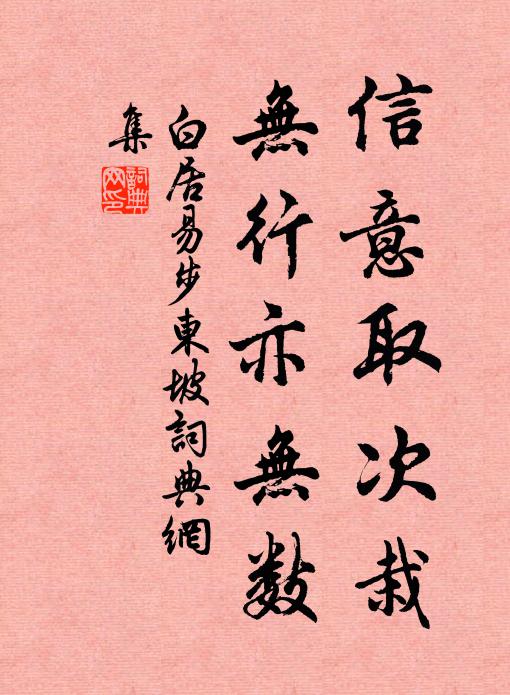 信意取次栽
無行亦無数
白居易步東坡詞典網
集
詞典
网印